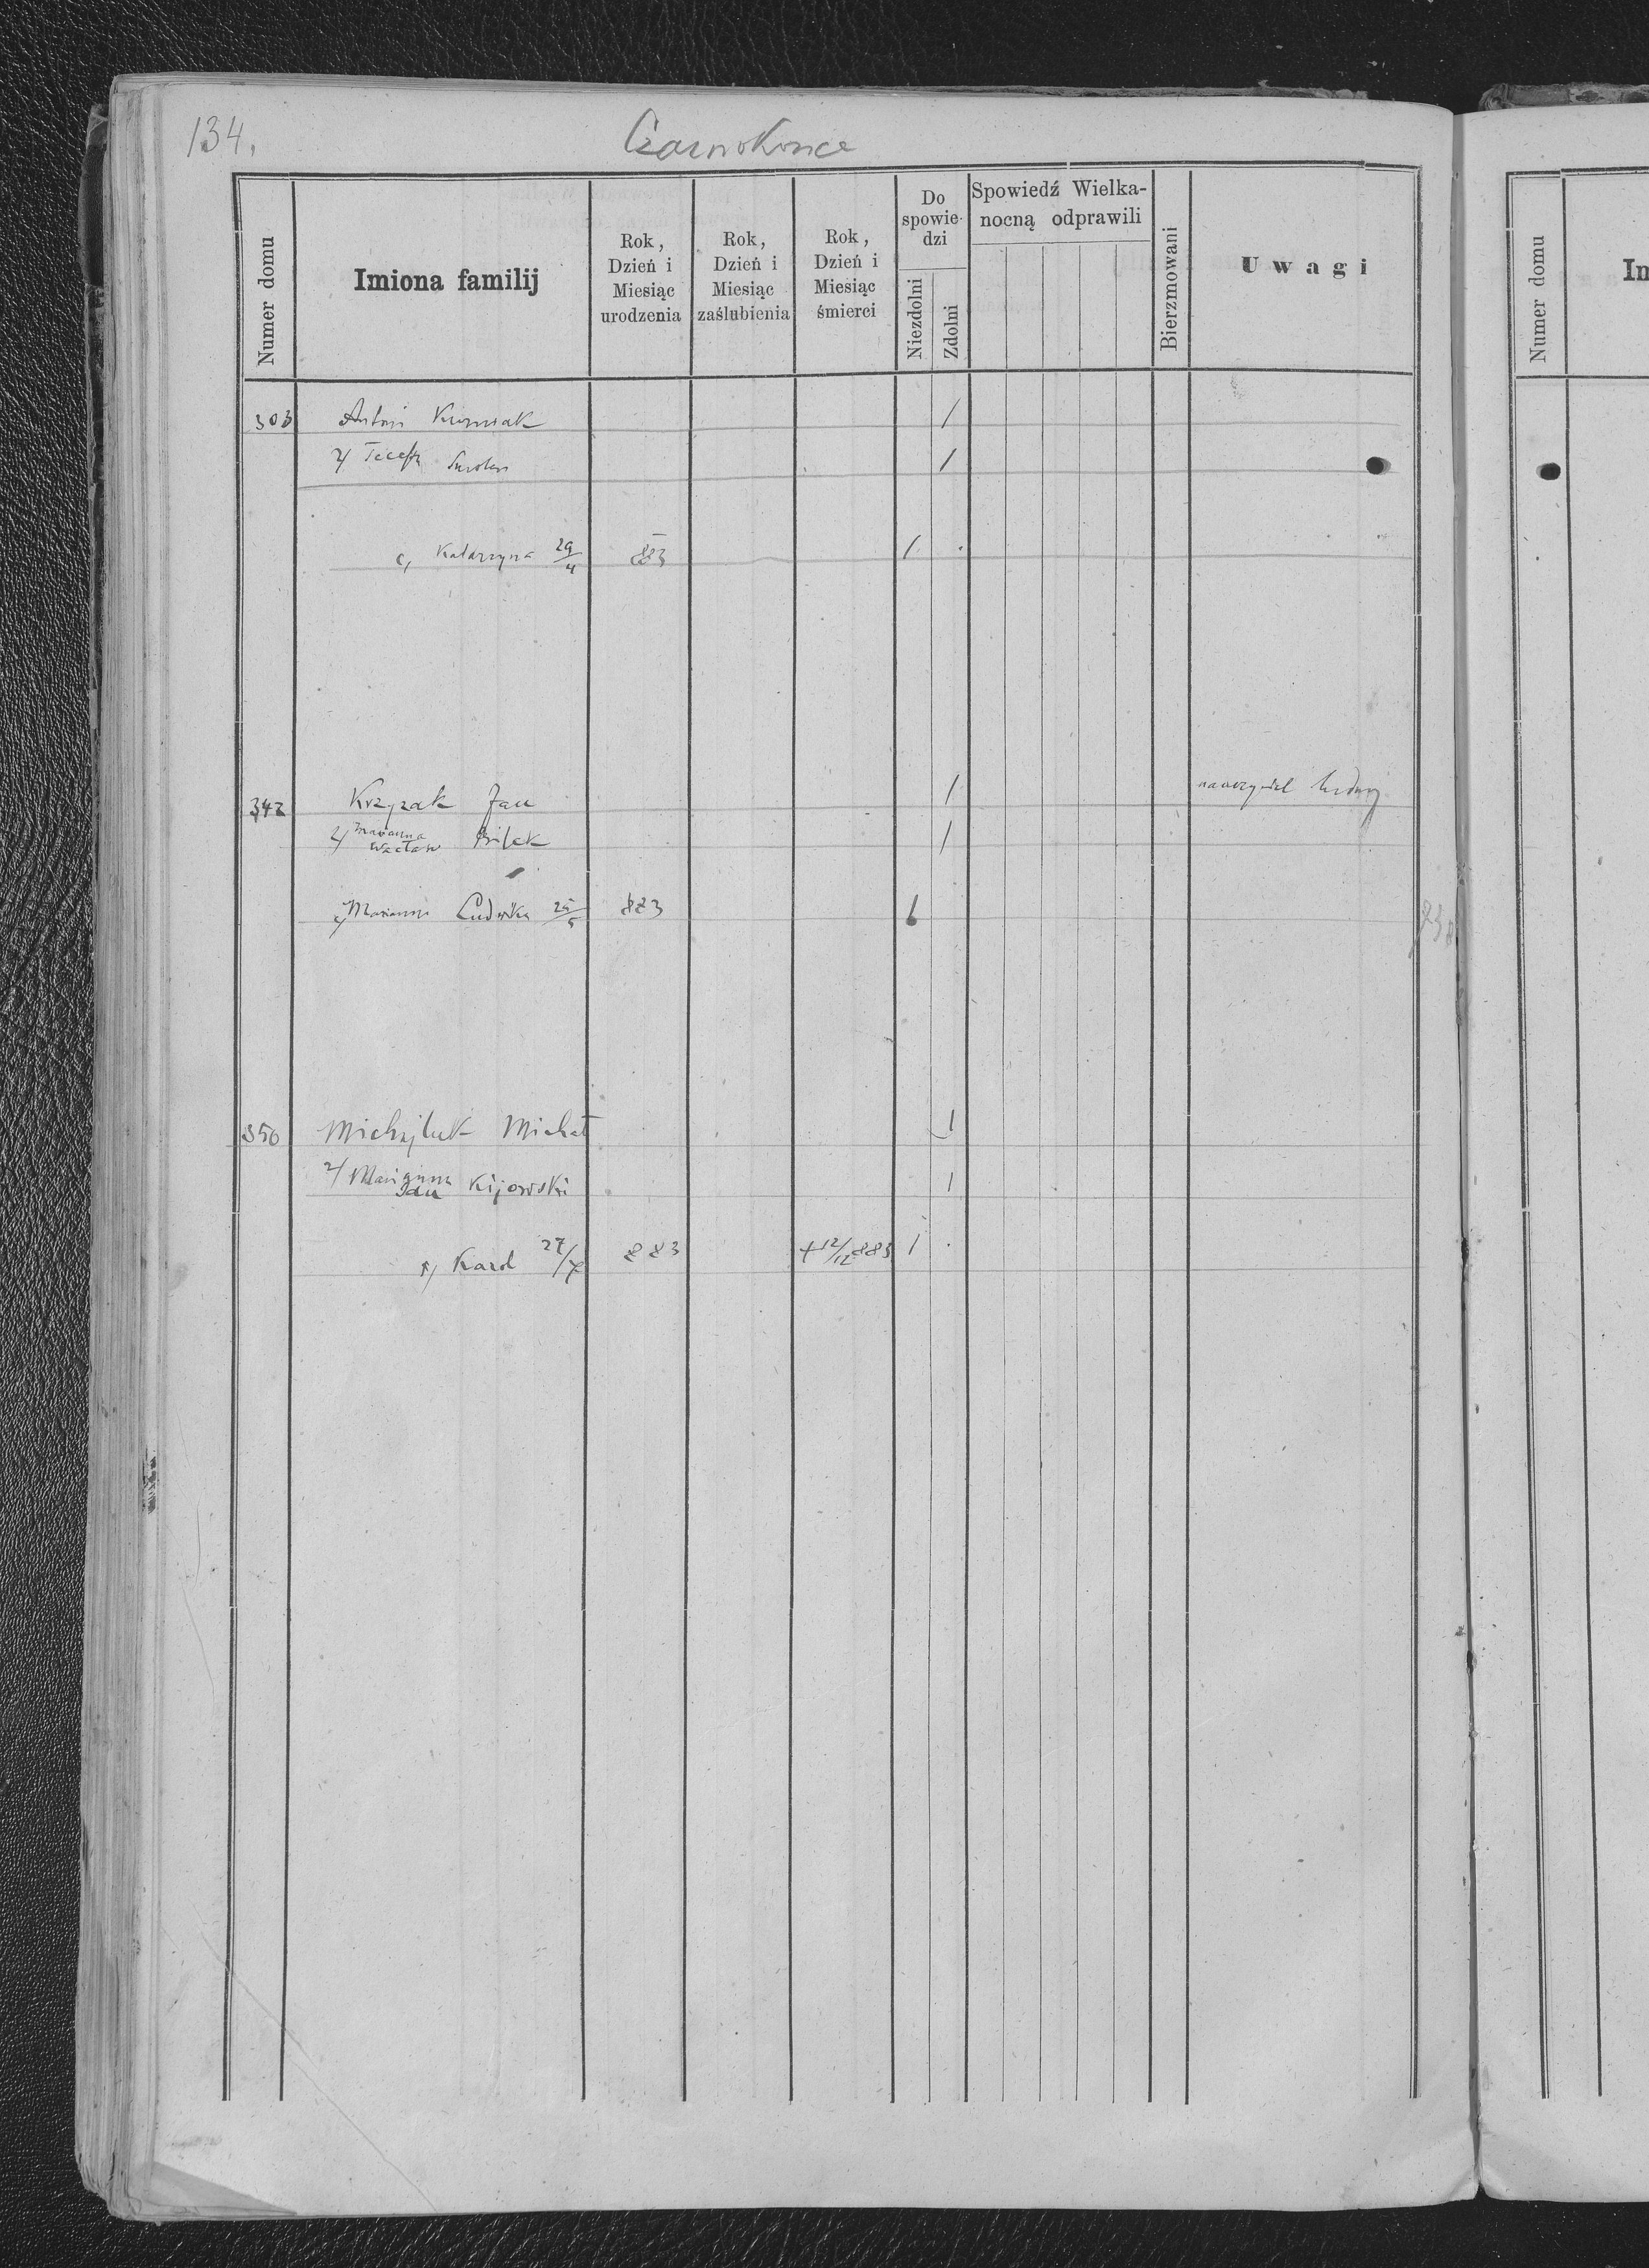 134.
Czarnokonce
Numer domu
Imiona familij
Rok, Dzień i Miesiąc urodzenia
Rok, Dzień i Miesiąc zaślubienia
Rok, Dzień i Miesiąc śmierci
Do spowiedzi
Niezdolni
Zdolni
Spowiedź Wielkanocną odprawili
Bierzmowani
Uwagi
303 Antoni /
2/ /
c, Katarzyna 29/4 883 1
342 Krzyzak Jan / nauczyciel ludowy
2/ Marianna /
Marianna Ludwika 883
350 Michajluk Michał 1
2/ Marianna Kijowski 1
Karol 27/7 883 + 12/12 883 1
Numer domu